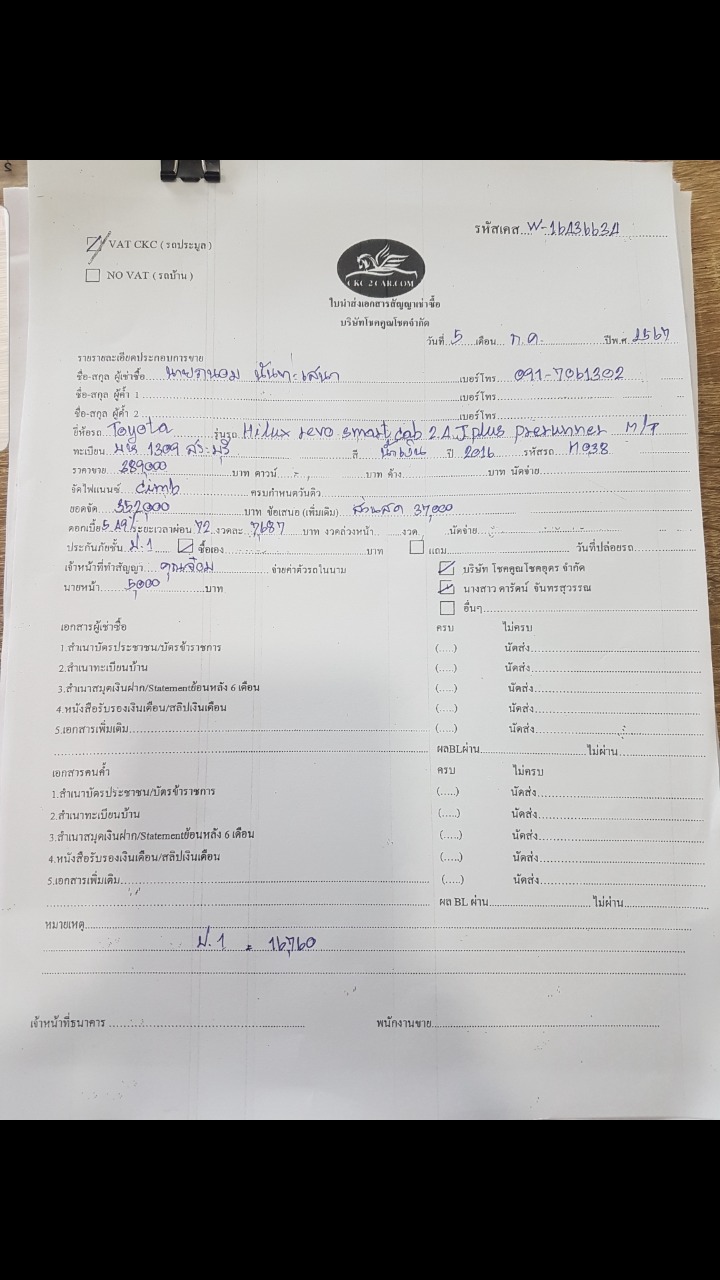 รหัสเคส...W-16A3663A
VAT CKC ( รถประมูล )
NO VAT ( รถบ้าน )
CKC 2 CAR.COM
ใบนำส่งเอกสารสัญญาเช่าซื้อ
บริษัทโชคคูณโชคจำกัด
วันที่ 5 เดือน ก.ค. ปีพ.ศ. 2567
รายรายละเอียดประกอบการขาย
ชื่อ-สกุล ผู้เช่าซื้อ นาย เบอร์โทร 091-7061302
ชื่อ-สกุล ผู้ค้ำ 1 เบอร์โทร
ชื่อ-สกุล ผู้ค้ำ 2 เบอร์โทร
ยี่ห้อรถ Toyota รุ่นรถ Hilux revo smart cab 2.4 J plus prerunner M/T
ทะเบียน 1309 สระบุรี สี น้ำเงิน ปี 2016 รหัสรถ 038
ราคาขาย 389,000 บาท ดาวน์ - บาท ค้าง บาท นัดจ่าย
จัดไฟแนนซ์ cimb ครบกำหนดวันดิว
ยอดจัด 352,000 บาท ข้อเสนอ (เพิ่มเติม) ส่วนลด 37,000
ดอกเบี้ย 5.19% ระยะเวลาผ่อน 72 งวดละ 7,687 บาท งวดล่วงหน้า งวด นัดจ่าย
ประกันภัยชั้น ป.1 ซื้อเอง บาท แถม วันที่ปล่อยรถ
เจ้าหน้าที่ทำสัญญา คุณจ๋อม จ่ายค่าตัวรถในนาม บริษัท โชคคูณโชคอุดร จำกัด
นายหน้า 5,000 บาท นางสาว ดารัตน์ จันทรสุวรรณ
อื่นๆ
เอกสารผู้เช่าซื้อ ครบ ไม่ครบ
1.สำเนาบัตรประชาชน/บัตรข้าราชการ (.....) นัดส่ง
2.สำเนาทะเบียนบ้าน (.....) นัดส่ง
3.สำเนาสมุดเงินฝาก/Statementย้อนหลัง 6 เดือน (.....) นัดส่ง
4.หนังสือรับรองเงินเดือน/สลิปเงินเดือน (.....) นัดส่ง
5.เอกสารเพิ่มเติม (.....) นัดส่ง
ผลBLผ่าน ไม่ผ่าน
เอกสารคนค้ำ ครบ ไม่ครบ
1.สำเนาบัตรประชาชน/บัตรข้าราชการ (.....) นัดส่ง
2.สำเนาทะเบียนบ้าน (.....) นัดส่ง
3.สำเนาสมุดเงินฝาก/Statementย้อนหลัง 6 เดือน (.....) นัดส่ง
4.หนังสือรับรองเงินเดือน/สลิปเงินเดือน (.....) นัดส่ง
5.เอกสารเพิ่มเติม (.....) นัดส่ง
ผล BL ผ่าน ไม่ผ่าน
หมายเหตุ
ป.1 = 16,760
เจ้าหน้าที่ธนาคาร พนักงานขาย